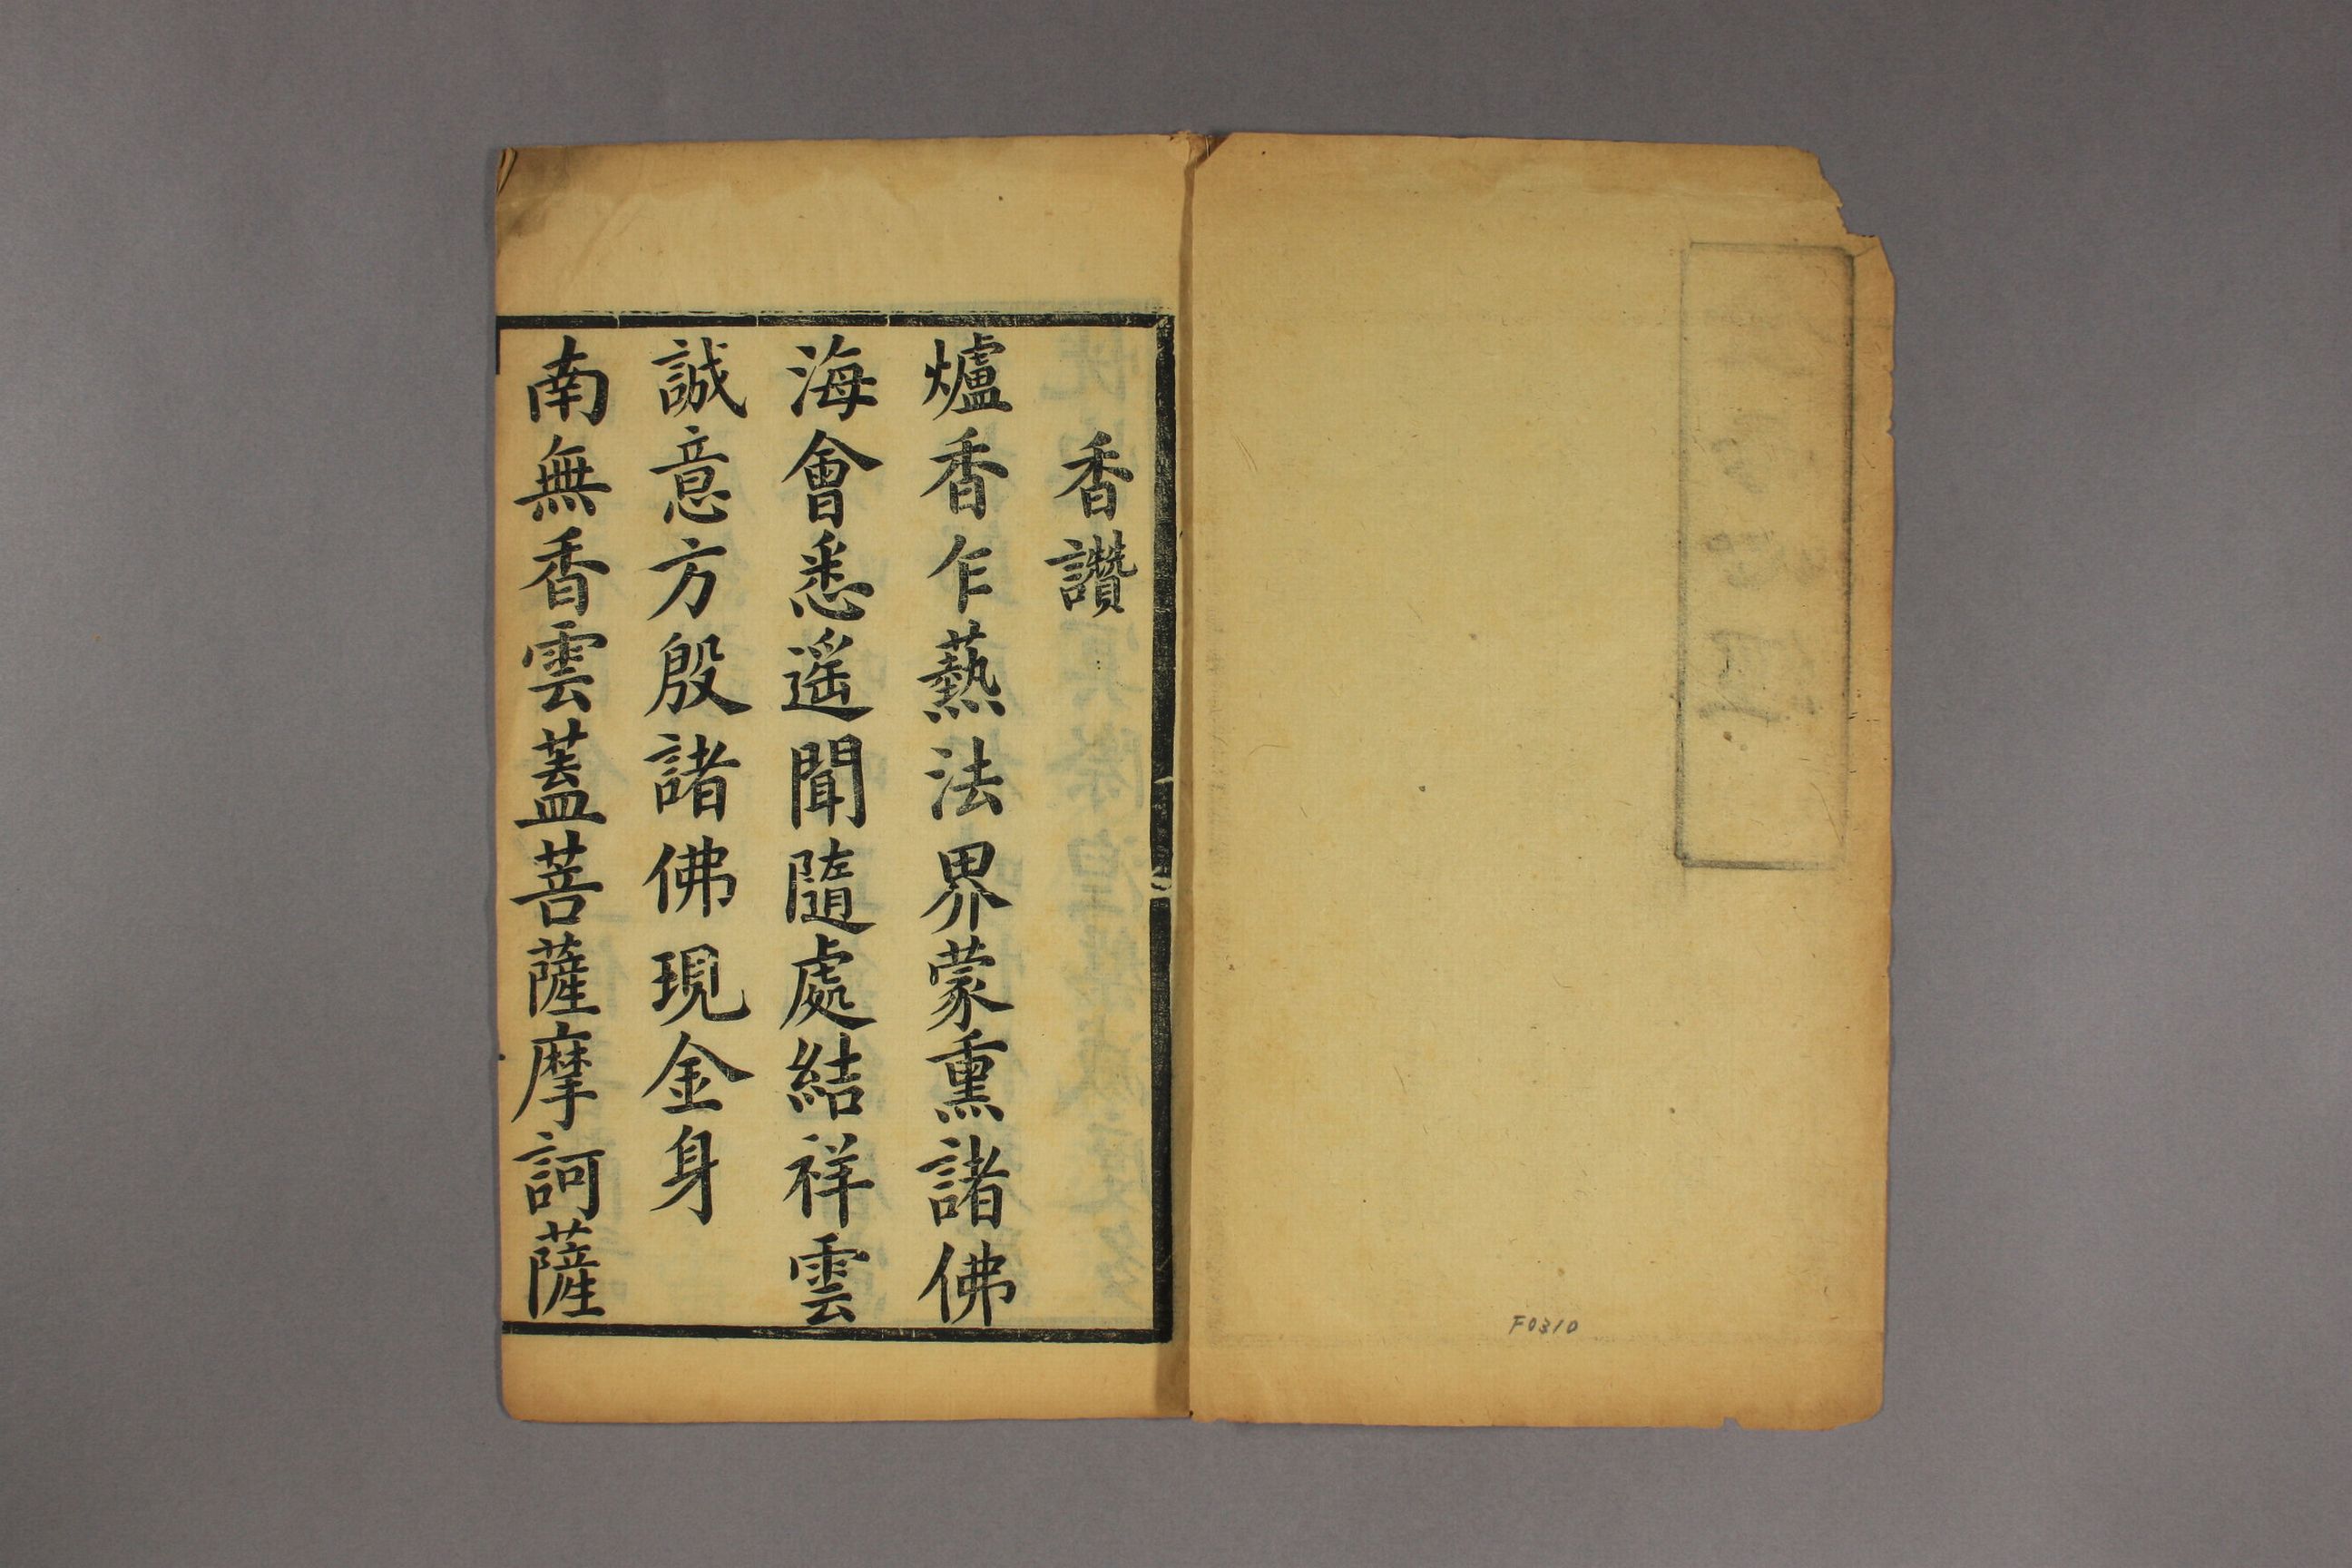 香讚
爐香乍爇法界蒙熏諸佛
海會悉遥聞隨處結祥雲
誠意方殷諸佛現金身
南無香雲蓋菩薩摩訶薩
F0310